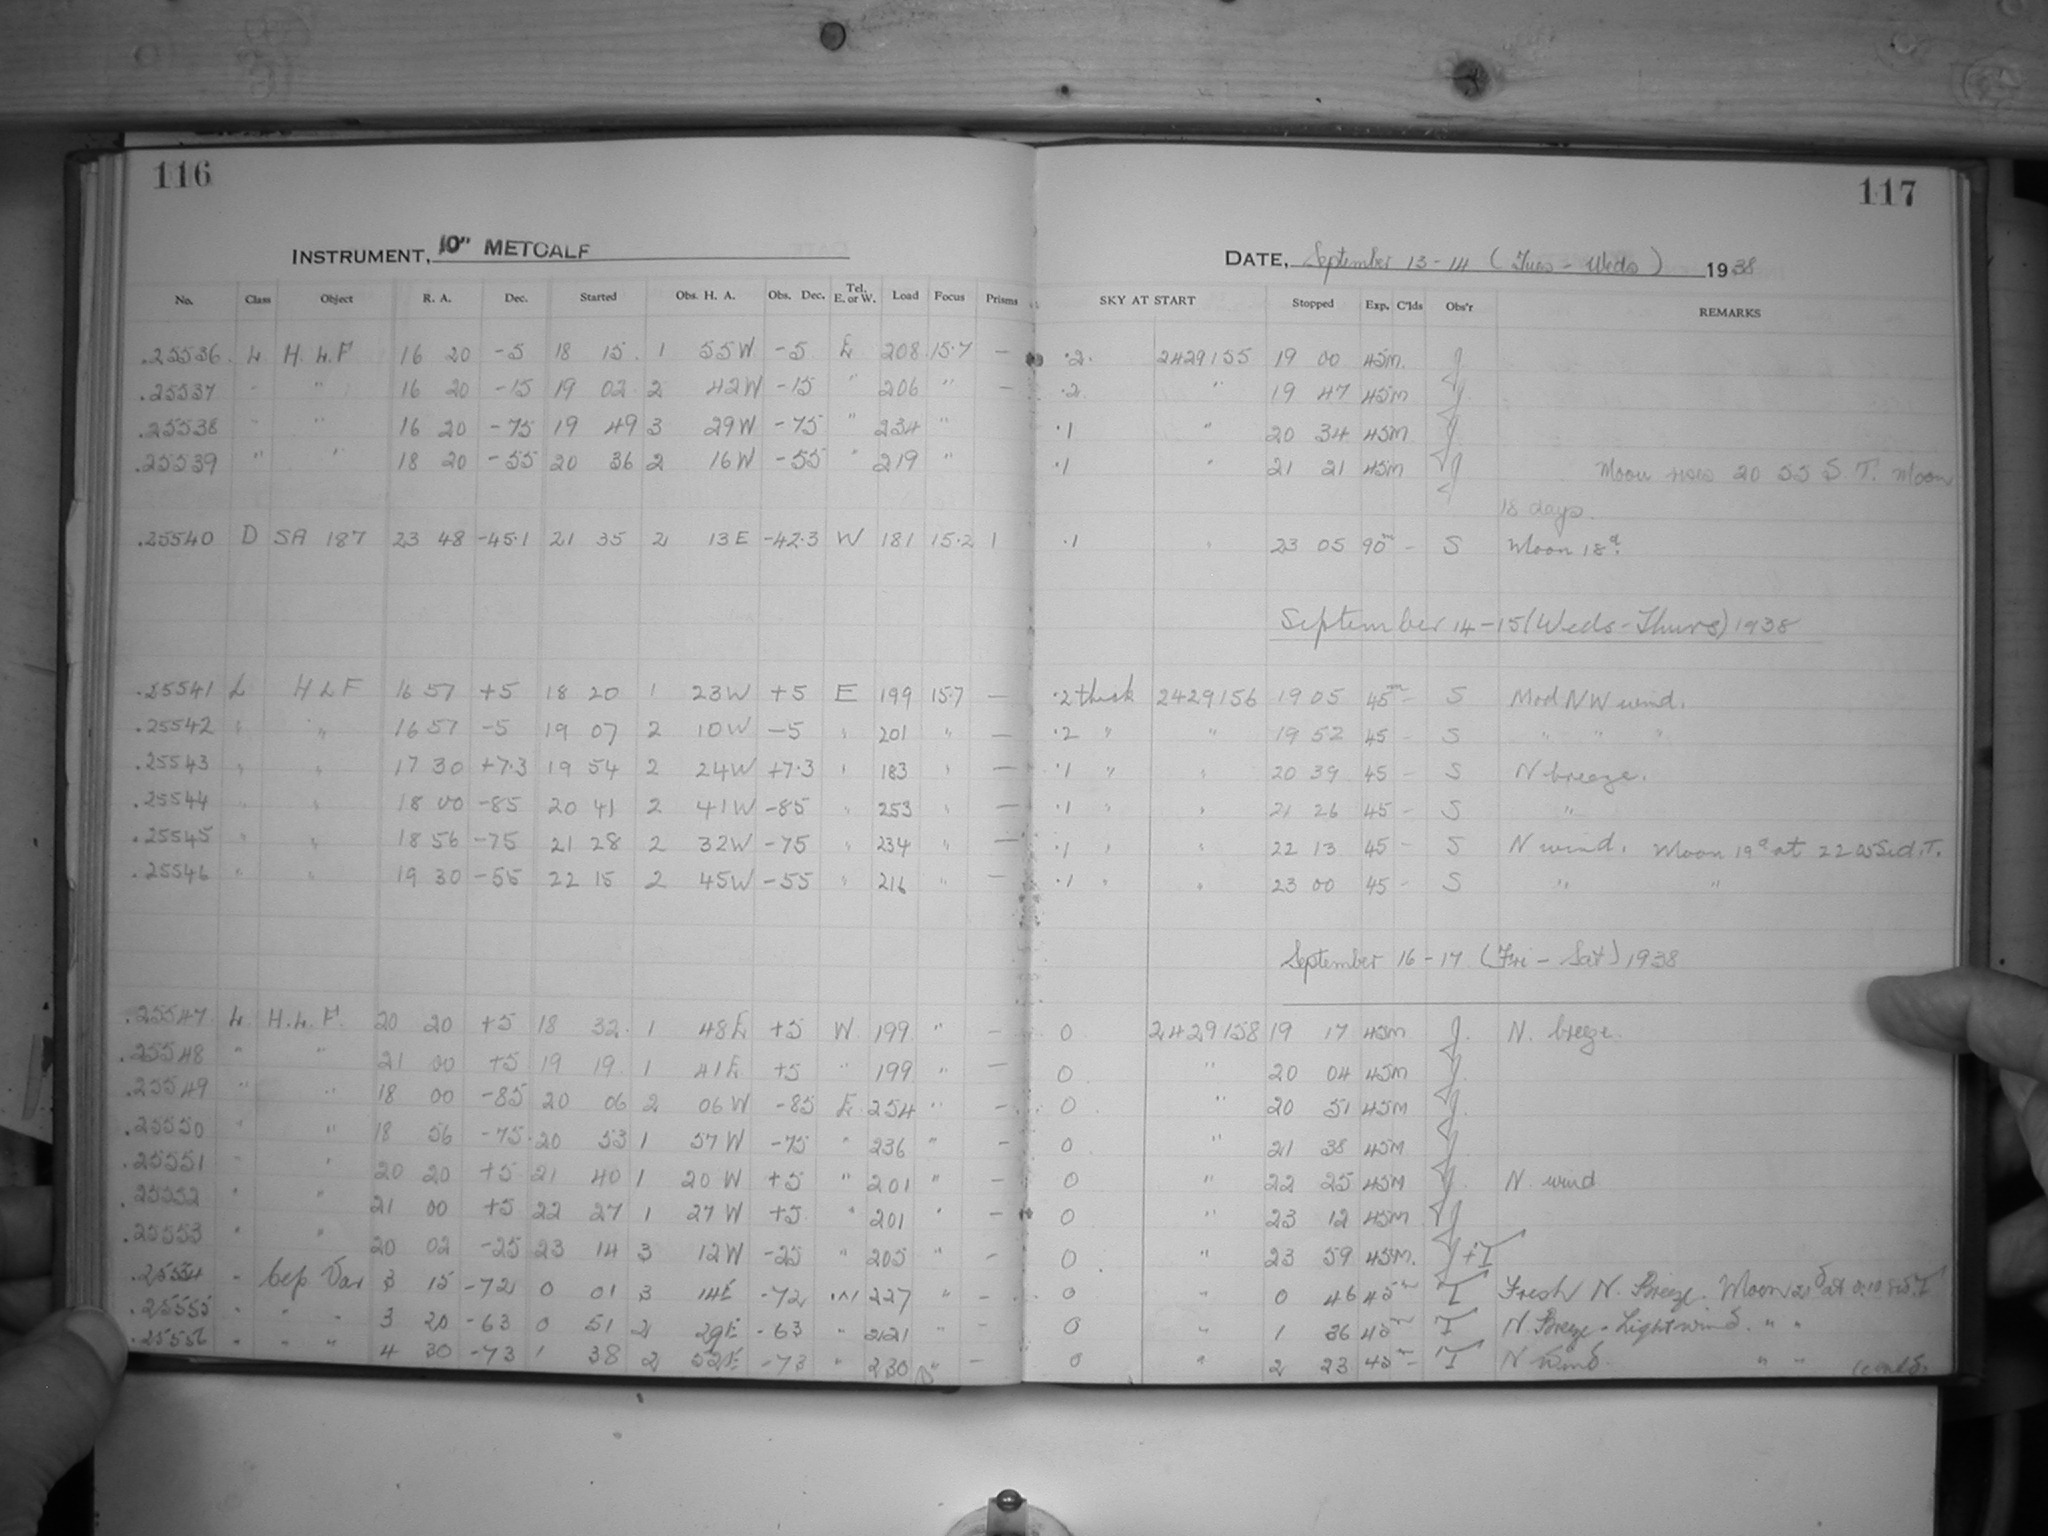 116
117
INSTRUMENT, 10" METCALF
DATE, September 13-14 (Tues - Weds) 1938
No. Class Object R. A. Dec. Started Obs. H. A. Obs. Dec. Tel. E. or W. Load Focus Prisms SKY AT START Stopped Exp. C'lds Obs'r REMARKS
.25536. L H.L.F 16 20 -5 18 15. 1 55W -5 E 208 15.7 — .2. 2429155 19 00 45m. J
.25537 " " 16 20 -15 19 02 2 42W -15 " 206 " — .2 " 19 47 45m J
.25538 " " 16 20 -75 19 49 3 29W -75 " 234 " .1 " 20 34 45m J
.25539 " " 18 20 -55 20 36 2 16W -55 " 219 " .1 " 21 21 45m J Moon rises 20 55 S.T. Moon
18 days.
.25540 D SA 187 23 48 -45.1 21 35 2 13E -42.3 W 181 15.2 1 .1 " 23 05 90m – S Moon 18d.
September 14-15 (Weds-Thurs) 1938
.25541 L H L F 16 57 +5 18 20 1 23W +5 E 199 15.7 — .2 thick 2429156 19 05 45m – S Mod NW wind.
.25542 " " 16 57 -5 19 07 2 10W -5 " 201 " — .2 " " 19 52 45 – S " " "
.25543 " " 17 30 +7.3 19 54 2 24W +7.3 " 183 " — .1 " " 20 39 45 – S N breeze.
.25544 " " 18 00 -85 20 41 2 41W -85 " 253 " — .1 " " 21 26 45 – S "
.25545 " " 18 56 -75 21 28 2 32W -75 " 234 " — .1 " " 22 13 45 – S N wind. Moon 19d at 22 05 Sid.T.
.25546 " " 19 30 -55 22 15 2 45W -55 " 216 " — .1 " " 23 00 45 – S " "
September 16-17 (Fri - Sat) 1938
.25547 L H.L.F. 20 20 +5 18 32. 1 48E +5 W. 199 " — 0 2429158 19 17 45m J. N. breeze.
.25548 " " 21 00 +5 19 19. 1 41E +5 " 199 " — 0 " 20 04 45m J.
.25549 " " 18 00 -85 20 06 2 06W -85 E 254 " — 0 " 20 51 45m J.
.25550 " " 18 56 -75 20 53 1 57W -75 " 236 " — 0 " 21 38 45m J
.25551 " " 20 20 +5 21 40 1 20W +5 " 201 " — 0 " 22 25 45m J. N. wind
.25552 " " 21 00 +5 22 27 1 27W +5 " 201 " — 0 " 23 12 45m J
.25553 " " 20 02 -25 23 14 3 12W -25 " 205 " — 0 " 23 59 45m. J+T
.25554 " Cep Var 3 15 -72 0 01 3 14E -72 W 227 " — 0 " 0 46 45m T Fresh N. Breeze. Moon
.25555 " " " 3 20 -63 0 51 2 29E -63 " 221 " — 0 " 1 36 45m T N. Breeze - Light wind. " "
.25556 " " " 4 30 -73 1 38 2 52E -73 " 230 " — 0 " 2 23 45m – T N Wind. " " contd.